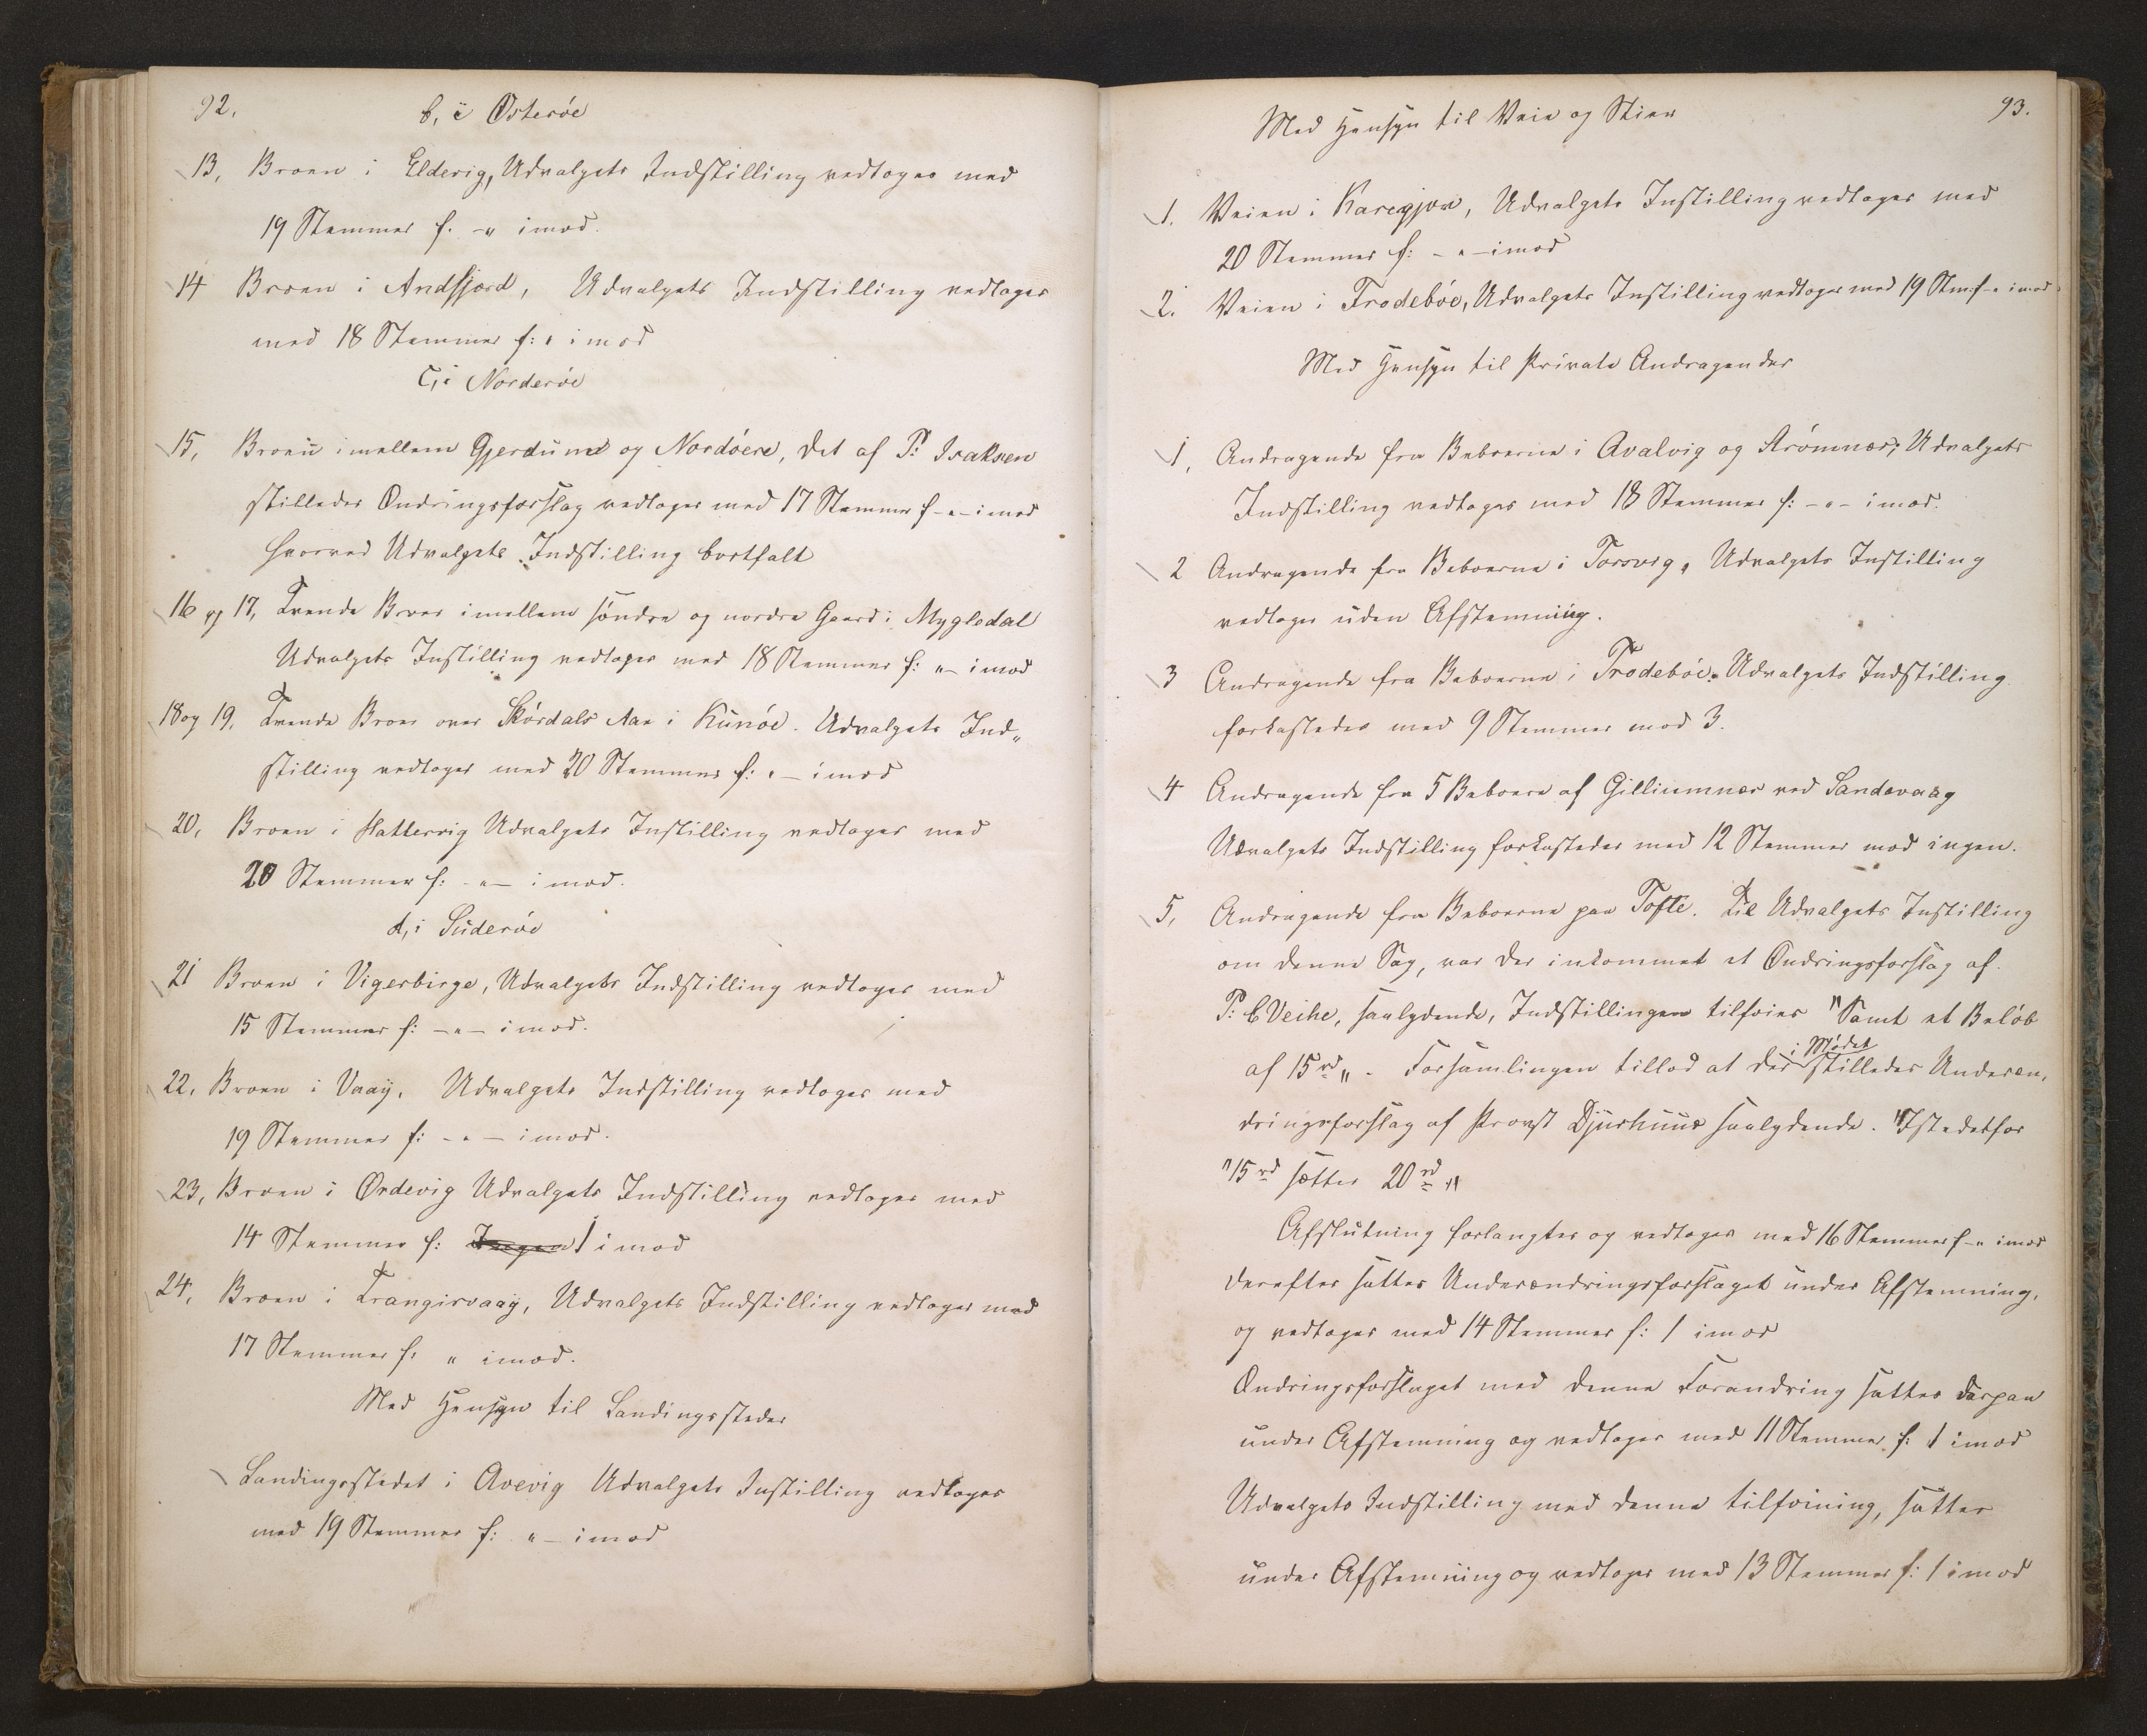 92.
b, i Österöe
13, Broen i Elderig, Udvalgets Indstilling vedtoges med
19 Stemmer f. -„ imod.
14 Broen i Andfjord, Udvalgets Indstilling vedtoges
med 18 Stemmer f: „ imod
C, i Norderöe
15, Broen imellem Gjerdum og Nordöere, det af P: Isaksen
stillede Ændringsforslag vedtoges med 17 Stemmer f -„- imod
hvorved Udvalgets Indstilling bortfalt
16 og 17, Tvende Broer imellem söndre og nordre Gaard i Mygledal
Udvalgets Instilling vedtoges med 18 Stemmer f: „- imod
18 og 19. Tvende Broer over Skórdals Aae i Kunöe. Udvalgets Ind„
stilling vedtoges med 20 Stemmer f: „- imod
20, Broen i Hattervig Udvalgets Instilling vedtoges med
20 Stemmer f: -„- imod.
d, i Süderöe
21 Broen i Vigerbirge, Udvalgets Indstilling vedtoges med
15 Stemmer f: -„- imod.
22, Broen i Vaag. Udvalgets Indstilling vedtoges med
19 Stemmer f: -„- imod.
23, Broen i Ordevig Udvalgets Indstilling vedtoges med
14 Stemmer f: Ingen 1 imod
24, Broen i Trangisvaag, Udvalgets Indstilling vedtoges med
17 Stemmer f: „ imod.
Med Hensyn til Landingssteder
Landingsstedet i Avevig Udvalgets Instilling vedtoges
med 19 Stemmer f: „- imod
93.
Med Hensyn til Veie og Stier
1. Veien i Karegjov, Udvalgets Instilling vedtoges med
20 Stemmer f: -„- imod
2. Veien i Frodebóe, Udvalgets Instilling vedtoges med 19 Stm: f -„ imod
Med Hensyn til Private Andragender
1, Andragende fra Beboerne i Qvalvig og Strömnæs, Udvalgets
Indstilling vedtoges med 18 Stemmer f: -„- imod.
2 Andragende fra Beboerne i Torsvig, Udvalgets Instilling
vedtoges uden Afstemning.
3 Andragende fra Beboerne i Frodebóe. Udvalgets Indstilling
forkastedes med 9 Stemmer mod 3.
4 Andragende fra 5 Beboere af Gilliumnæs ved Sandevaag
Udvalgets Indstilling forkastedes med 12 Stemmer mod ingen.
5, Andragende fra Beboerne paa Tofte. Til Udvalgets Instilling
om denne Sag, var der inkommet et Ændringsforslag af
P: C Veihe, saalydende, Indstillingen tilföies "Samt et Belöb
af 15 rd „ . Forsamlingen tillod at der stilledes Underæn„
i Mödet
dringsforslag af Provst Djurhuus saalydende. "Istedetfor
"15 rd sættes 20 rd "
Afslutning forlangtes og vedtoges med 16 Stemmer f -„ imod
derefter sattes Underændringsforslaget under Afstemning,
og vedtoges med 14 Stemmer f: 1 imod
Ændringsforslaget med denne Forandring sattes derpaa
under Afstemning og vedtoges med 11 Stemmer f: 1 imod
Udvalgets Indstilling med denne tilföining, sattes
under Afstemning og vedtoges med 13 Stemmer f: 1 imod